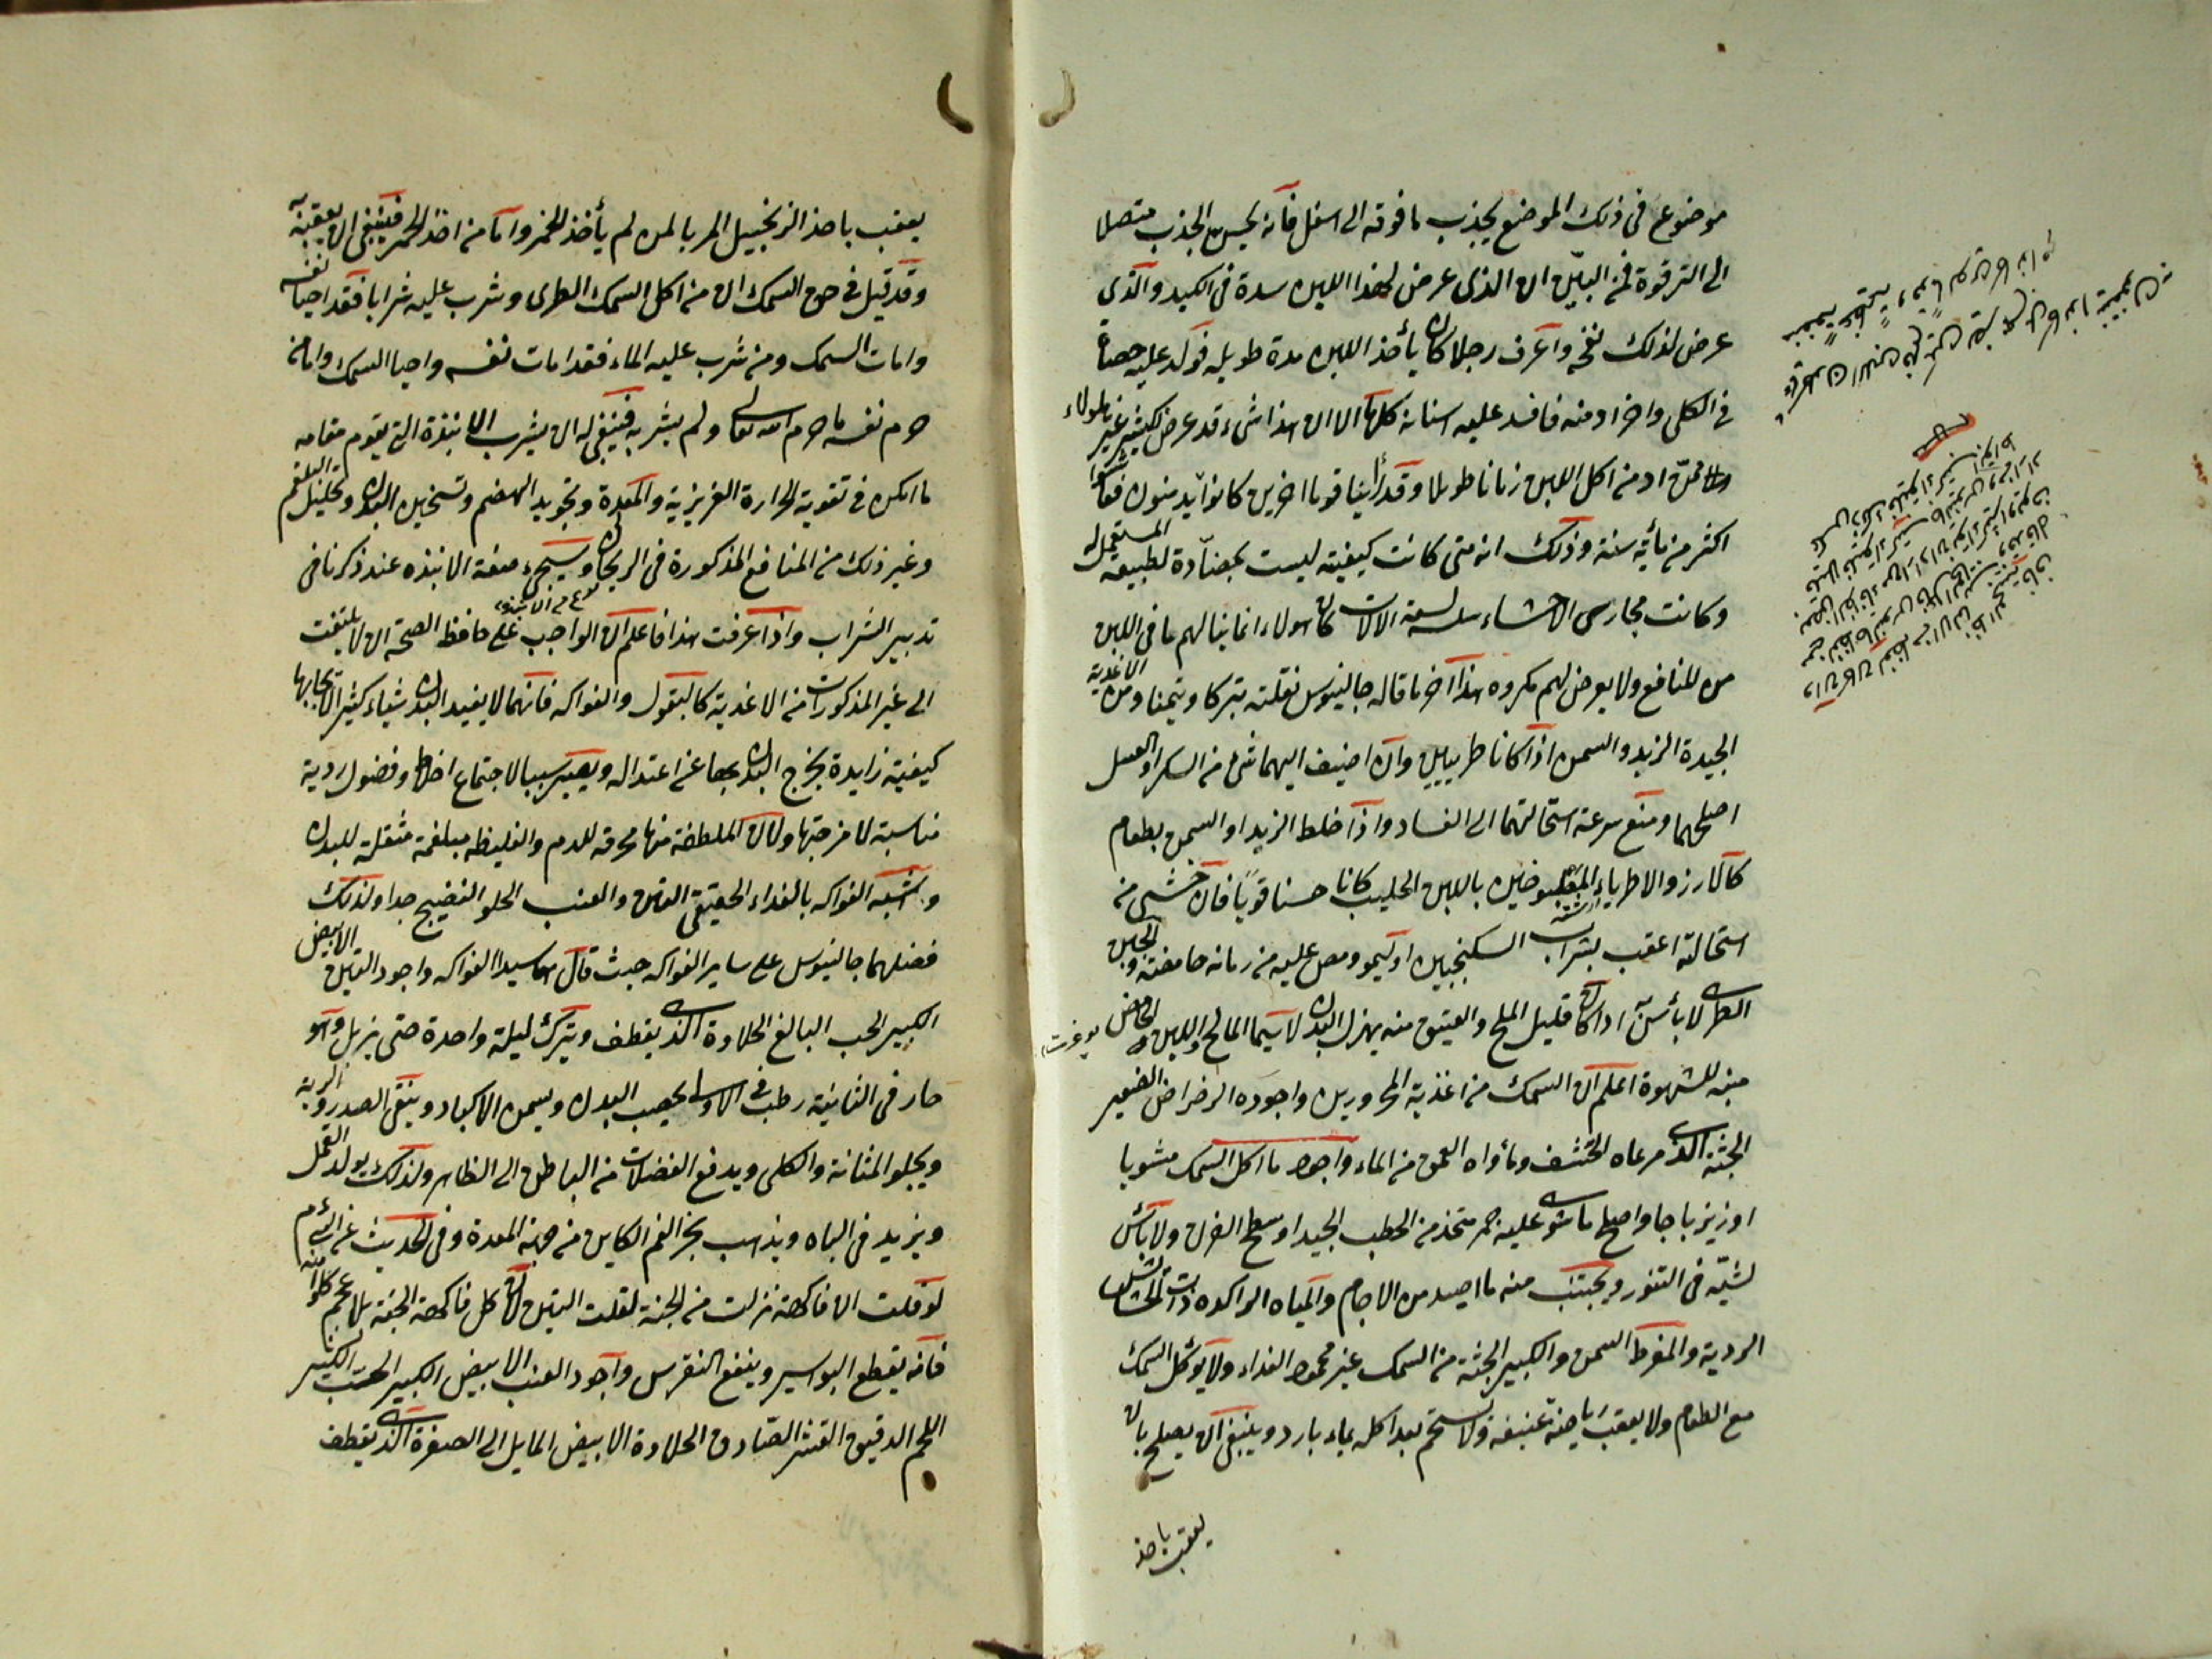 موضوع فى ذلك الموضع يجذب ما فوقه الى اسفل فانه يحس الجذب متصلا
الى الترقوة فمن البيّن ان الذى عرض لهذا اللبن سدة فى الكبد والذى
عرض لذلك نفخ واعرف رجلا كان يأخذ اللبن مدة طويله فولد عليه حصاة
فى الكلى واخر ادمنه فافسد عليه اسنانه كلها الا ان هذا شىء قد عرض لكثير غير هولاء
ممن ادمن اكل اللبن زمانا طويلا وقد رأينا قوما اخرين كانوا يدمنونه فعاشوا
اكثر من مأية سنة وذلك انه متى كانت كيفيته ليست بمضادة لطبيعة المستعمل له
وكانت مجارى الاحشاء سلسه لسعة الالات كان هولاء انما ينالهم ما فى اللبن
من المنافع ولا يعرض لهم مكروه هذا اخر ما قاله جالينوس نقلته تبركا وتيمنا ومن الاغدية
الجيدة الزبد والسمن اذا كانا طريين وان اضيف اليهما شىء من السكر او العسل
اصلحهما ومنع سرعة استحالتهما الى الفساد واذا خلط الزبد او السمن بطعام
كالارز والاطرياء المطبوخين باللبن الحليب كانا حسنا قويا فان خشى من
استحالته اعقب بشراب السكنجبين او ليمو ومص عليه من رمانه حامضة والجبن
الطرى لا بأس به اذا كان قليل الملح والعتيق منه يهزل البدن لا سيما المالح واللبن الحامض
يوغرت
منبه للشهوة اعلم ان السمك من اغذية المحرورين واجوده الرضراض الصغير
الجثة الذى مرعاه الحشف ومأواه العمق من الماء واجود ما اكل السمك مشويا
او زيرباجا واصلح ما شوى عليه جمر متخذ من الحطب الجيد او سطح الفرن ولا بأس
لشيّه فى التنور ويجتنب منه ما اصيد من الاجام والمياه الراكده ذات الحشائش
الردية والمفرط السمن والكبير الجثة من السمك غير محمود الغداء ولا يوكل السمك
مع الطعام ولا يعقب رياضة عنيفه ولا يستحم بعد اكله بماء بارد وينبغى ان يصلح بان
يعقب باخذ
يعقب باخذ الزنجبيل المربا لمن لم يأخذ الخمر واما من اخذ الخمر فينبغى ان يعقبه به
وقد قيل فى حق السمك ان من اكل السمك الطرى وشرب عليه شرابا فقد احيا نفسه
وامات السمك ومن شرب عليه الماء فقد امات نفسه واحيا السمك وامامن
حرم نفسه ما حرم الله تعالى ولم يشربه فينبغى له ان يشرب الانبذة التى يقوم مقامه
ما امكن فى تقوية الحرارة الغريزية والمعدة وتجويد الهضم وتسخين البدن وتحليل البلغم
وغير ذلك من المنافع المذكورة فى الريحان وسيجىء صفة الانبذه عند ذكرنا فى
نوع من الانبذه
تدبير الشراب واذا عرفت هذا فاعلم ان الواجب على حافظ الصحة ان لا يلتفت
الى غير المذكورات من الاغدية كالبقول والفواكه فانهما لا يفيد البدن شياء كثير الا بحابها
كيفيته زايدة يخرج البدن بها عن اعتداله ويصير سببا لاجتماع اخلاط وفضول ردية
مناسبة لامزجتها ولان الملطفة منها محرقه للدم والغليظه مبلغمة مثقلة للبدن
واشبه الفواكه بالغداء الحقيقى التين والعنب الحلو النضيج جدا ولذلك
فضلهما جالينوس على ساير الفواكه حيث قال هما سيدا الفواكه واجود التين الابيض
الكبير الحب البالغ الحلاوة الذى يقطف ويترك ليلة واحدة حتى يزبل وهو
حار فى الثانية رطب فى الاولى يخصب البدن ويسمن الاكباد وينقى الصدر والرية
ويجلو المثانة والكلى ويدفع الفضلات من الباطن الى الظاهر ولذلك يولد القمل
ويزيد فى الباه ويذهب بخر الفم الكاين من جهة المعدة وفى الحديث عن النبى عم
لو قلت ان فاكهة نزلت من الجنة لقلت التين لان كل فاكهة الجنة بلا عجم كلوا منه
فانه يقطع البواسير وينفع النقرس واجود العنب الابيض الكبير الحب الكثير
اللحم الدقيق القشر الصادق الحلاوة الابيض المايل الى الصفرة الذى يقطف